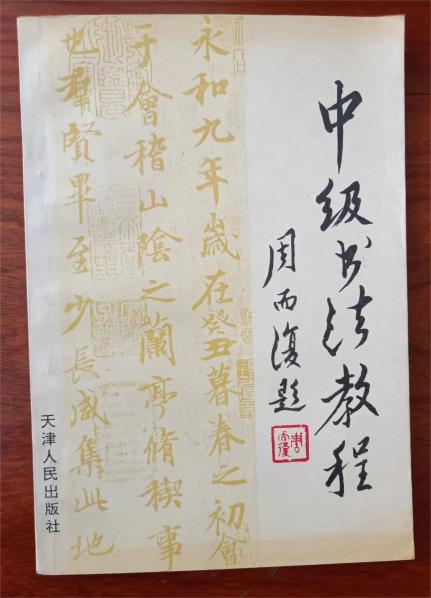 中级书法教程
周而复题
永和九年岁在癸丑暮春之初會
于會稽山陰之蘭亭脩稧事
也群賢畢至少長咸集此地
天津人民出版社